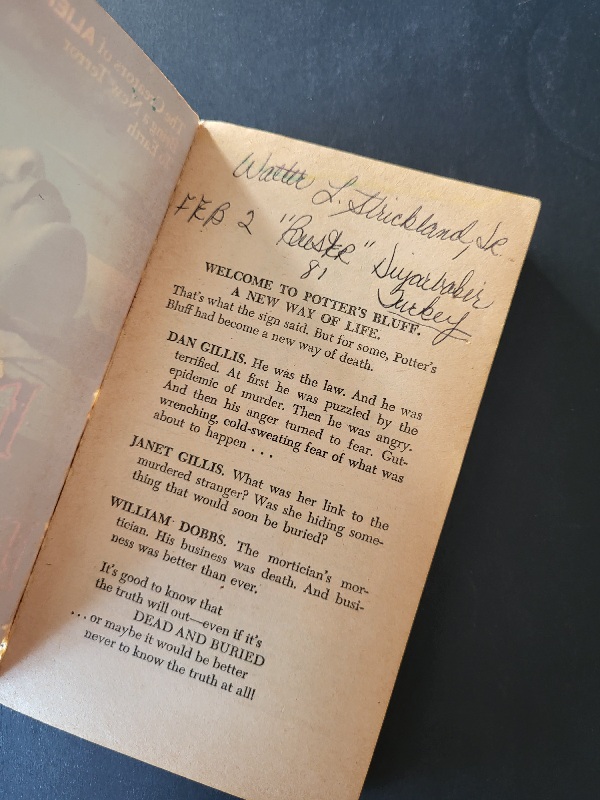 The Creators of ALIEN
Bring a New Terror
To Earth
Walter L. Strickland, Jr.
FEB 2 "Buster" Diyarbakir
81 Turkey
WELCOME TO POTTER'S BLUFF.
A NEW WAY OF LIFE.
That's what the sign said. But for some, Potter's
Bluff had become a new way of death.
DAN GILLIS. He was the law. And he was
terrified. At first he was puzzled by the
epidemic of murder. Then he was angry.
And then his anger turned to fear. Gut-
wrenching, cold-sweating fear of what was
about to happen . . .
JANET GILLIS. What was her link to the
murdered stranger? Was she hiding some-
thing that would soon be buried?
WILLIAM DOBBS. The mortician's mor-
tician. His business was death. And busi-
ness was better than ever.
It's good to know that
the truth will out—even if it's
DEAD AND BURIED
. . . or maybe it would be better
never to know the truth at all!